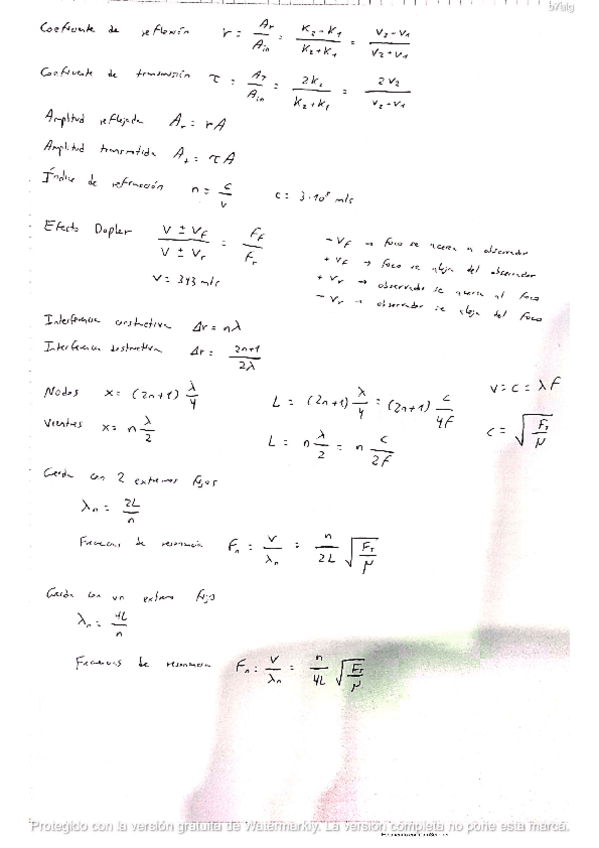 Coeficiente de reflexión r = Ar/Ain = K2-K1/K2+K1 = V2-V1/V2+V1
Coeficiente de transmisión τ = AT/Ain = 2K1/K2+K1 = 2V2/V2-V1
Amplitud reflejada Ar = rA
Amplitud transmitida At = τA
Índice de refracción n = c/v c = 3·10⁸ m/s
Efecto Dopler V ± VF / V ± Vr = FF/Fr
V = 343 m/s
- VF → foco se acerca a observador
+ VF → foco se aleja del observador
+ Vr → observador se acerca al foco
- Vr → observador se aleja del foco
Interferencia constructiva Δr = nλ
Interferencia destructiva Δr = 2n+1/2λ
Nodos x = (2n+1) λ/4 L = (2n+1) λ/4 = (2n+1) c/4F V = c = λF
Vientres x = n λ/2 L = n λ/2 = n c/2F c = √FT/μ
Cuerda con 2 extremos fijos
λn = 2L/n
Frecuencias de resonancia Fn = V/λn = n/2L √FT/μ
Cuerda con un extremo fijo
λn = 4L/n
Frecuencias de resonancia Fn = V/λn = n/4L √FT/μ
Protegido con la versión gratuita de Watermarkly. La versión completa no pone esta marca.